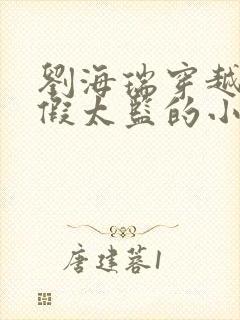 劉海瑞穿越
假太監的小
唐建蓉1